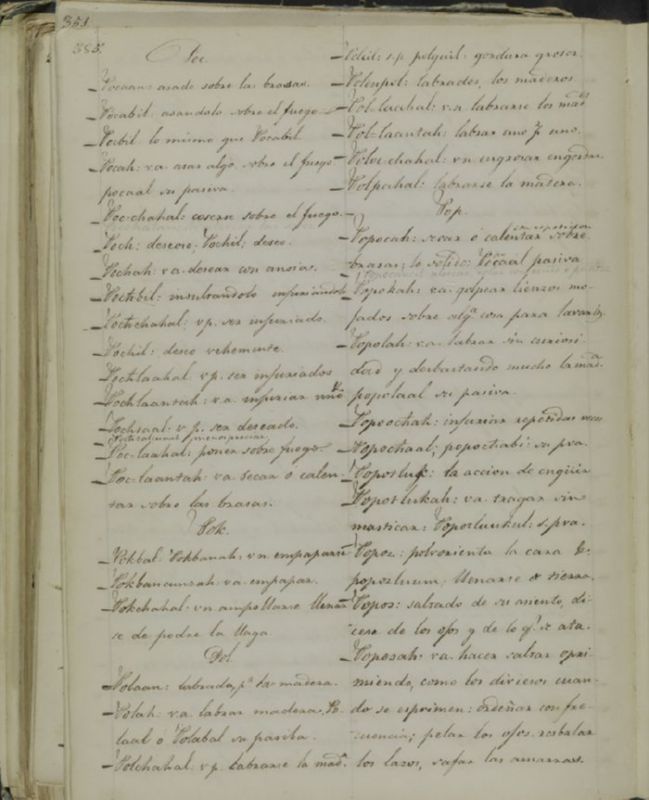 351.
385.
Poc
Pocaan: asado sobre las brasas.
Pocabil: asandolo sobre el fuego
Pocbil: lo mismo que Pocabil
Pocah: va. asar algo sobre el fuego
pocaal su pasiva.
Poc-chahal: coserse sobre el fuego.
Poch: deseoso; Pochil; deseo.
Pochah: v.a. desear con ansias.
Pochbil: insultandolo injuriandolo
Pochchahal: v.p. ser injuriado.
Pochil: deseo vehemente.
Pochlaahal v.p. ser injuriados
Pochlaantah: v.a. injuriar
Pochtaal: v.p. ser deseado.
Poc-laahal: poner sobre fuego.
Poc-laantah: va. secar ó calen
tar sobre las brasas.
Pok.
Pokbal Pokbanah: vn. empaparse
Pokbancunzah: va. empapar.
Pokchahal: vn ampollarse llenar
se de podre la llaga
Pol
Polaan: labrado, pª la madera.
Polah: v.a. labrar madera, Po-
laal ó Polabal su pasiba.
Polchahal: v.p. labrarse la madª.
Polcil: s.p. polquil: gordura grosor.
labrados, los maderos
Pol-laahal: v.a. labrarse los mados
Pol-laantah: labrar uno pr uno.
Poloc-chahal: vn engrosar engordar
Polpahal: labrarse la madera.
Pop.
Popocah: asar ó calentar sobre
brasas; lo solido: pasiva
Popokah: va. golpear lienzos mo-
jados sobre algª cosa para lavarlos.
Popolah: v.a. labrar sin curiosi-
dad y desbastando mucho la madª
popolaal su pasiva.
Popochah: injuriar repetidas veces
Popochaal; popochabi: su pva.
la accion de engüir
Poposlukah: va. tragar sin
masticar: s. pva.
Popoz: polvorienta la cara &.
popozluum; llenarse de tierra.
Popoz: saltado de su asiento, di-
cese de los ojos y de lo q. se ata.
Popozah: va. hacer saltar opri-
miendo, como los diviesos cuan-
do se esprimen: ordeñar con fre-
cuencia; pelar los ojos. resbalar
los lazos, safar las amarras.